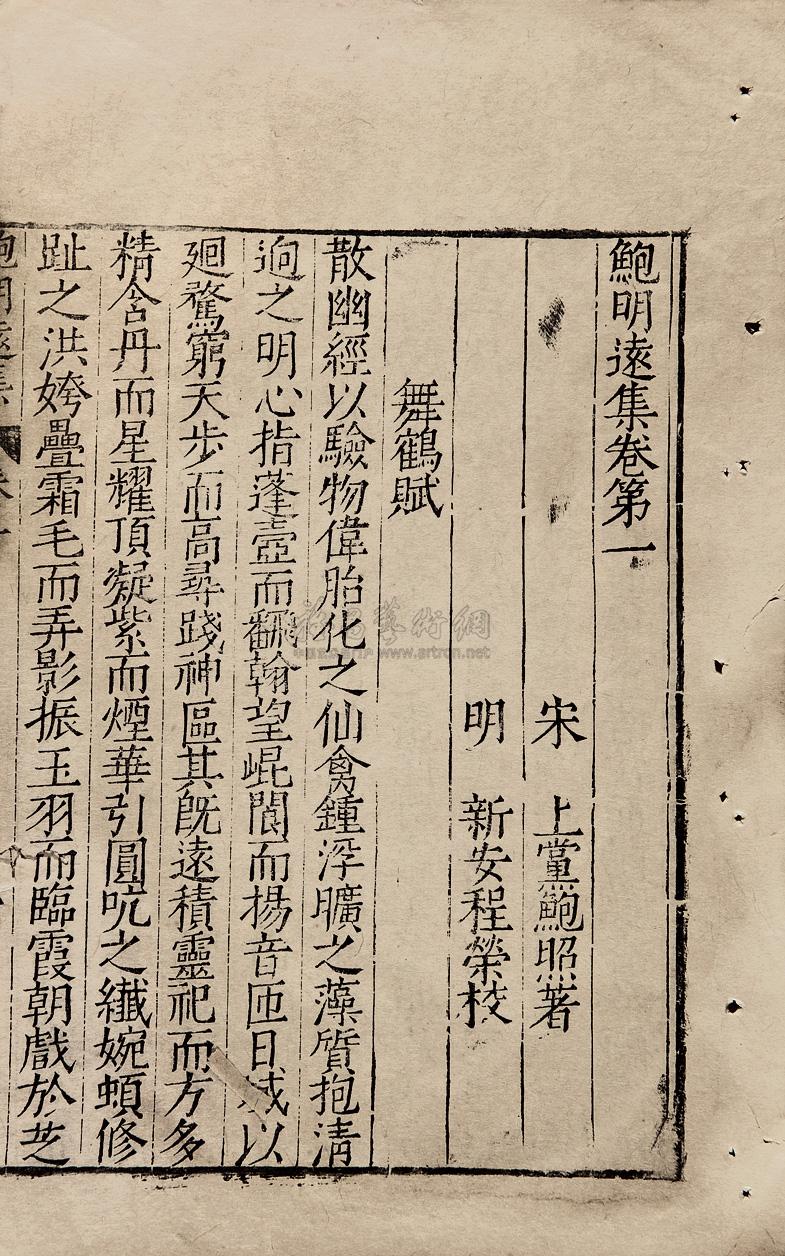 鮑明遠集卷第一
宋 上黨鮑照著
明 新安程榮校
舞鶴賦
散幽經以驗物偉胎化之仙禽鍾浮曠之藻質抱清
逈之明心指蓬壺而翻翰望崐閬而揚音匝日域以
廻騖窮天步而高尋踐神區其旣遠積靈祀而方多
精含丹而星耀頂凝紫而煙華引圓吭之纖婉頓修
趾之洪姱疊霜毛而弄影振玉羽而臨霞朝戲於芝
鮑明遠集
www.artron.net